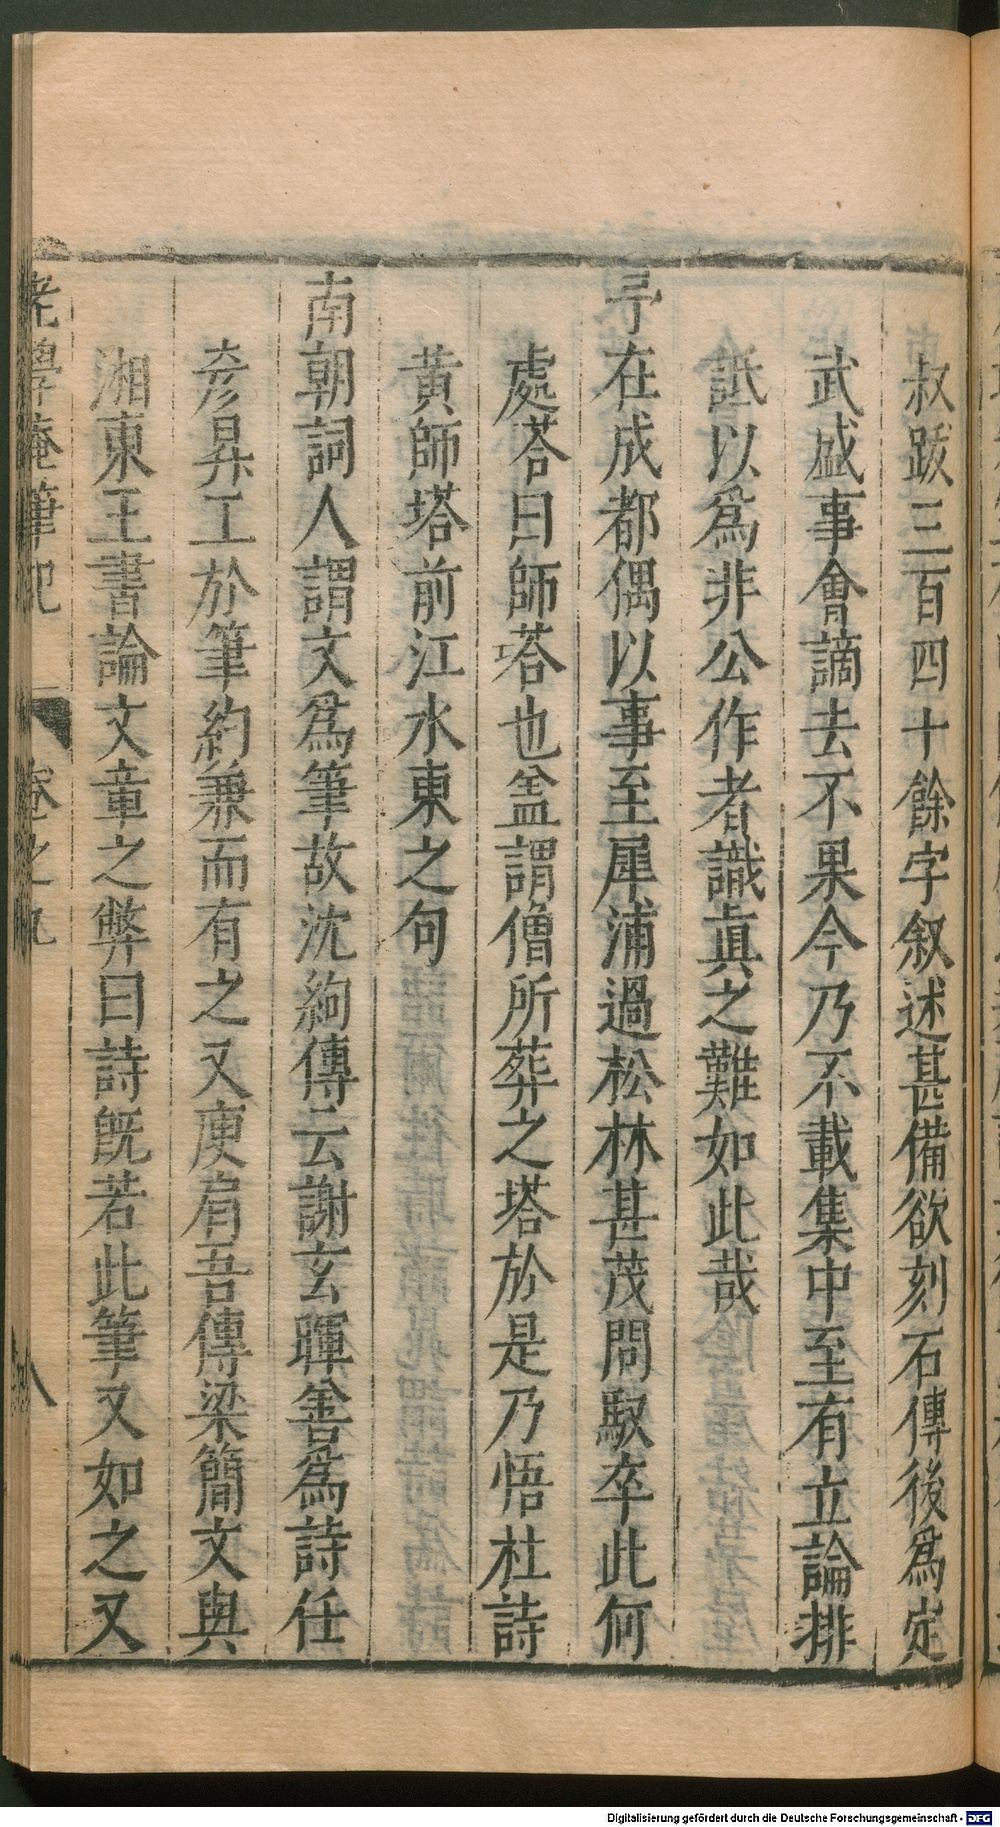 叔跋三百四十餘字叙述甚備欲刻石傳後爲定
武盛事會謫去不果今乃不載集中至有立論排
詆以爲非公作者識眞之難如此哉
予在成都偶以事至犀浦過松林甚茂問馭卒此何
處荅曰師荅也盖謂僧所葬之塔於是乃悟杜詩
黄師塔前江水東之句
南朝詞人謂文爲筆故沈約傳云謝玄暉善爲詩任
彦昇工於筆約兼而有之又庾肩吾傳梁簡文與
湘東王書論文章之弊曰詩旣若此筆又如之又
老學庵筆記 卷之九 八
Digitalisierung gefördert durch die Deutsche Forschungsgemeinschaft - DFG